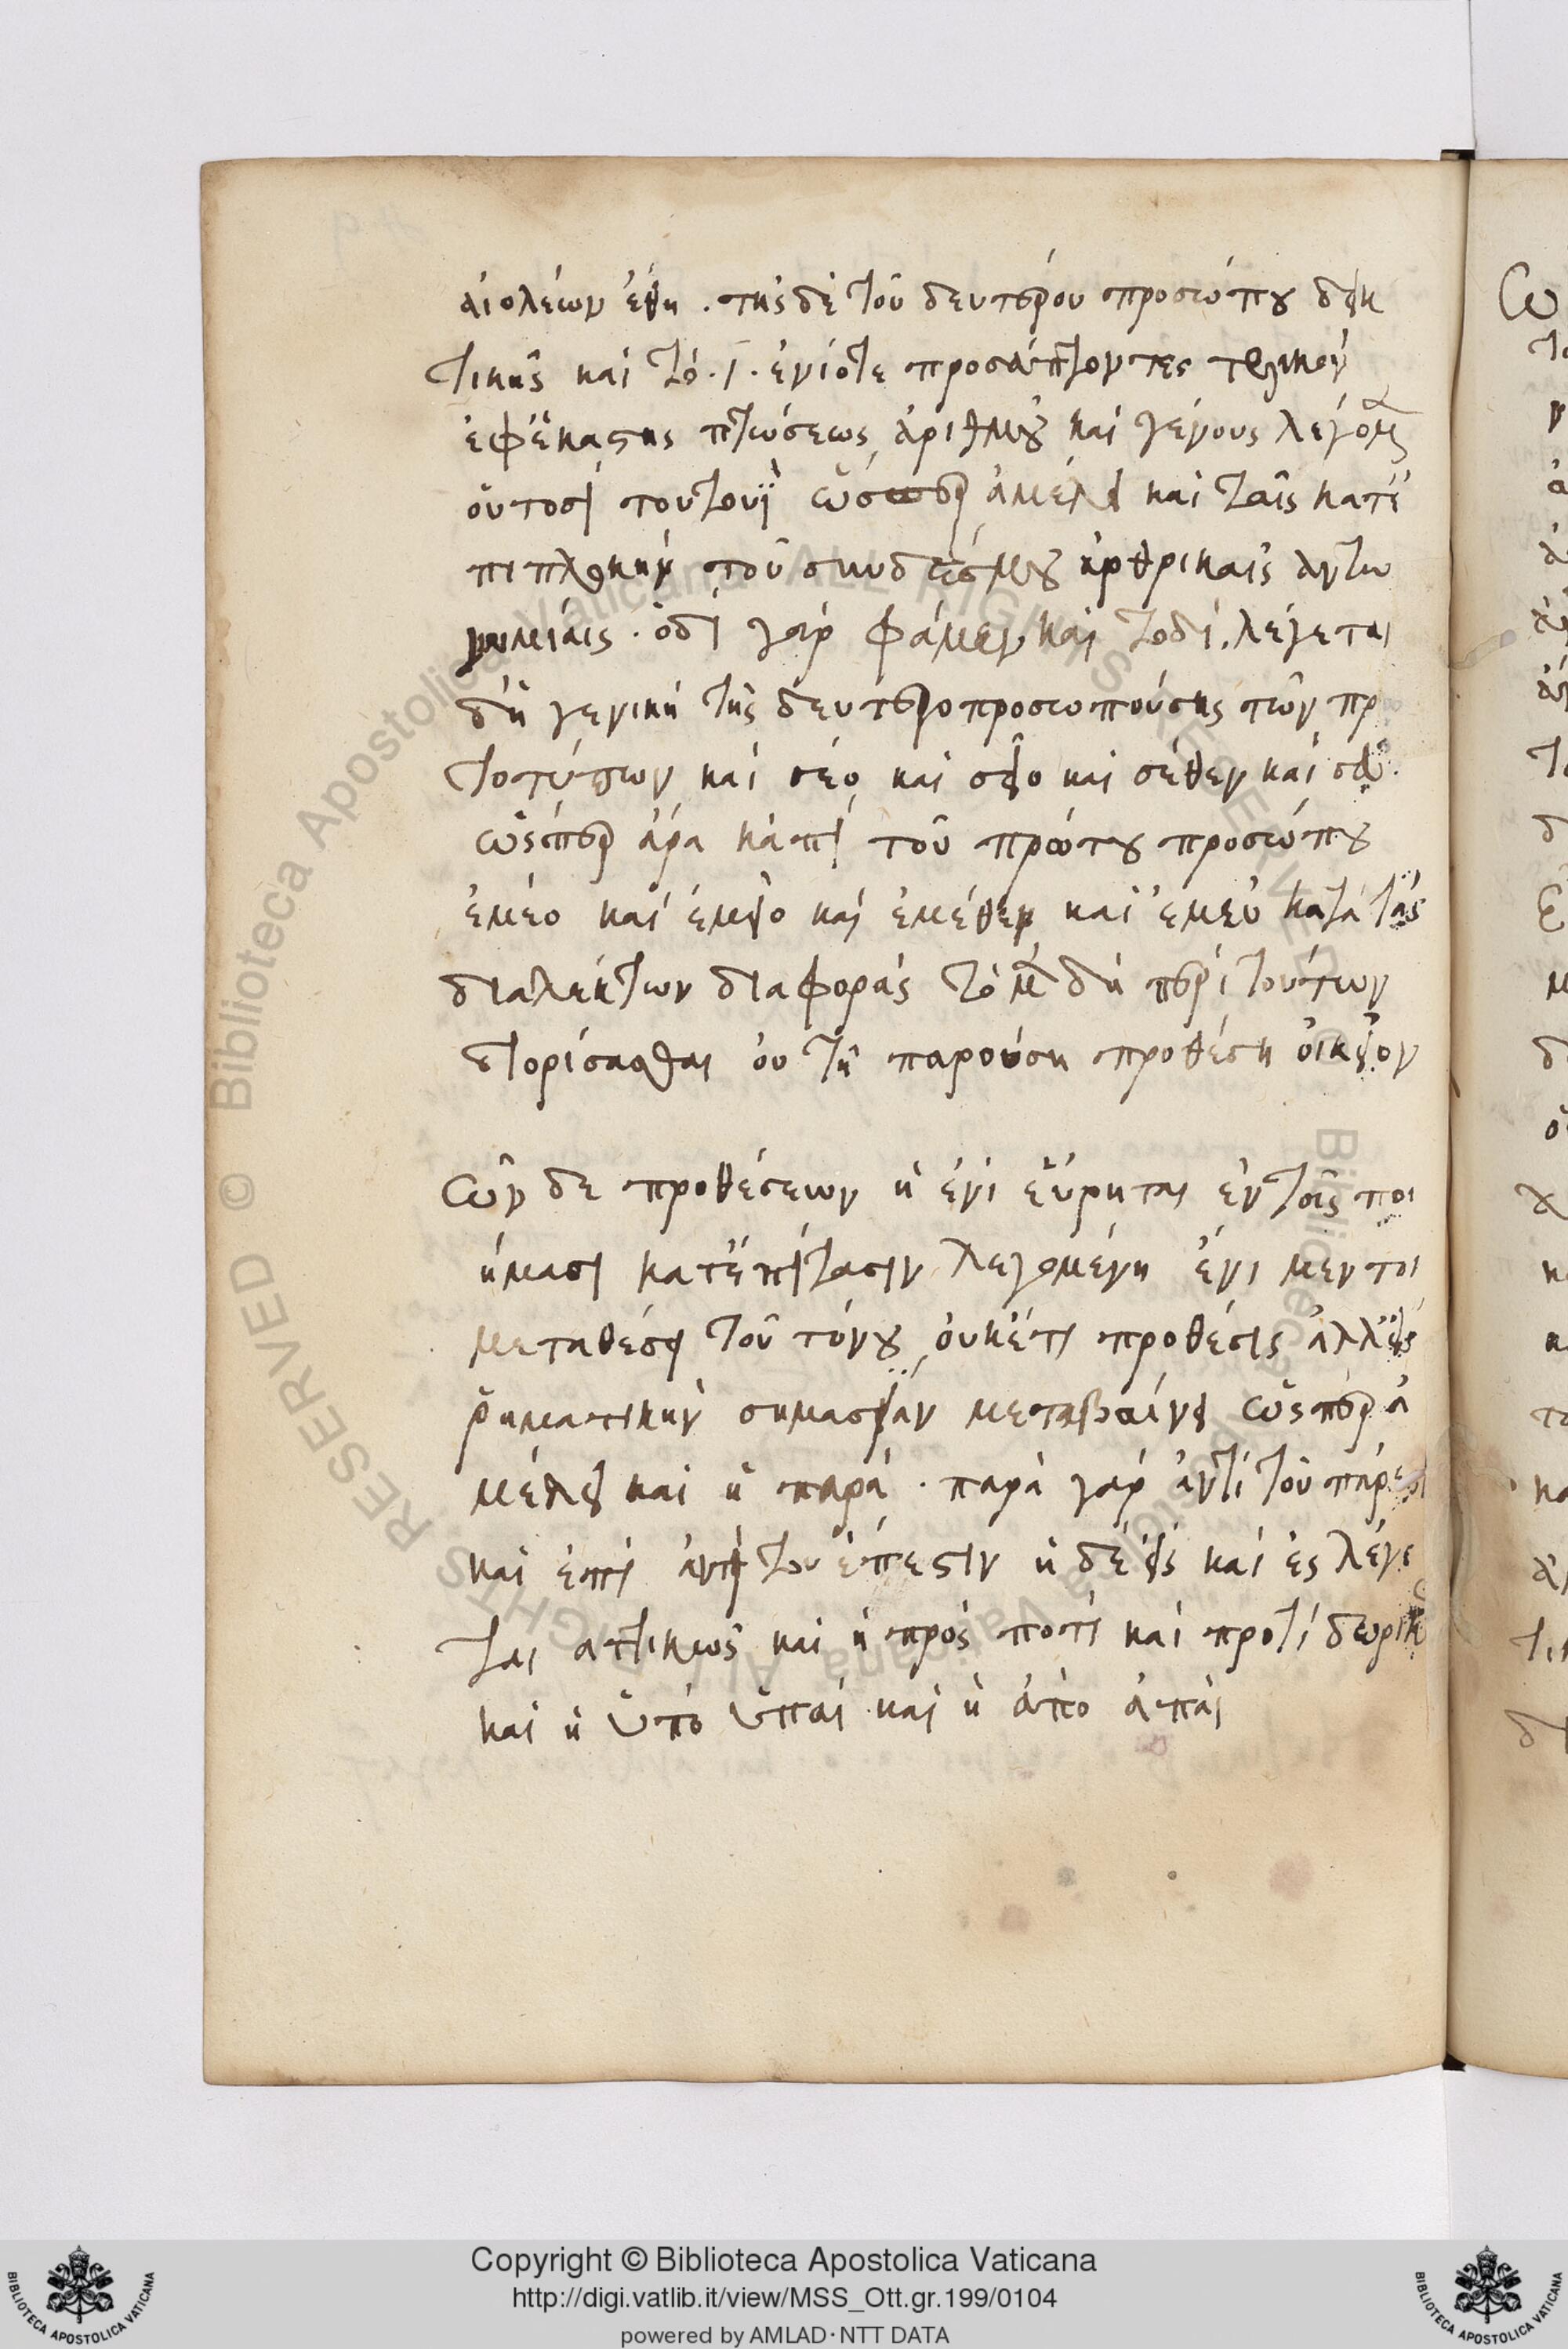 αἰολέων ἔθη . τῆς δὲ τοῦ δευτέρου προσώπου δεικ
τικῆς καὶ τὸ .ι. ἐνίοτε προσάπτοντες τελικὸν
ἐφ' ἑκάστης πτώσεως ἀριθμοῦ καὶ γένους λέγομεν
οὑτοσὶ τουτουῒ ὥσπερ ἀμέλει καὶ ταῖς κατ' ἐ
πιπλοκὴν τοῦ συνδέσμου ἀρθρικαῖς ἀντω
νυμίαις . ὁδὶ γὰρ φάμεν καὶ τοδί . λέγεται
δὴ γενικὴ τῆς δευτεροπροσωπούσης τῶν πρ
τοτύπων καὶ σέο καὶ σεῖο καὶ σέθεν καὶ σεῦ .
ὥσπερ ἄρα κἀπὶ τοῦ πρώτου προσώπου
ἐμέο καὶ ἐμεῖο καὶ ἐμέθεν καὶ ἐμεῦ κατὰ τὰς
διαλέκτων διαφοράς τὸ μὲν δὴ περὶ τούτων
ἱστορίσασθαι οὐ τῇ παρούσῃ προθέσῃ οἰκεῖον
ῶν δε προθέσεων ἡ ἐνὶ εὕρηται ἐν τοῖς ποι
ήμασι κατ' ἐπίτασιν λεγομένη ἔνι μεν τοι
μεταθέσει τοῦ τόνου οὐκέτι προθέσις ἀλλ' εἰς
ῥηματικὴν σημασίαν μεταβαίνει ὥσπερ ἀ
μέλει καὶ ἡ παρά . πάρα γὰρ ἀντὶ τοῦ πάρεστι
καὶ ἐπὶ ἀντὶ του ἔπεστιν ἡ δὲ εἰς καὶ ἐς λέγε
ται αττικῶς καὶ ἡ πρὸς ποτὶ καὶ προτὶ δωρικ
καὶ ἡ ὑπὸ ὑπαὶ καὶ ἡ ἀπὸ ἀπαὶ
Copyright © Biblioteca Apostolica Vaticana
http://digi.vatlib.it/view/MSS_Ott.gr.199/0104
powered by AMLAD·NTT DATA